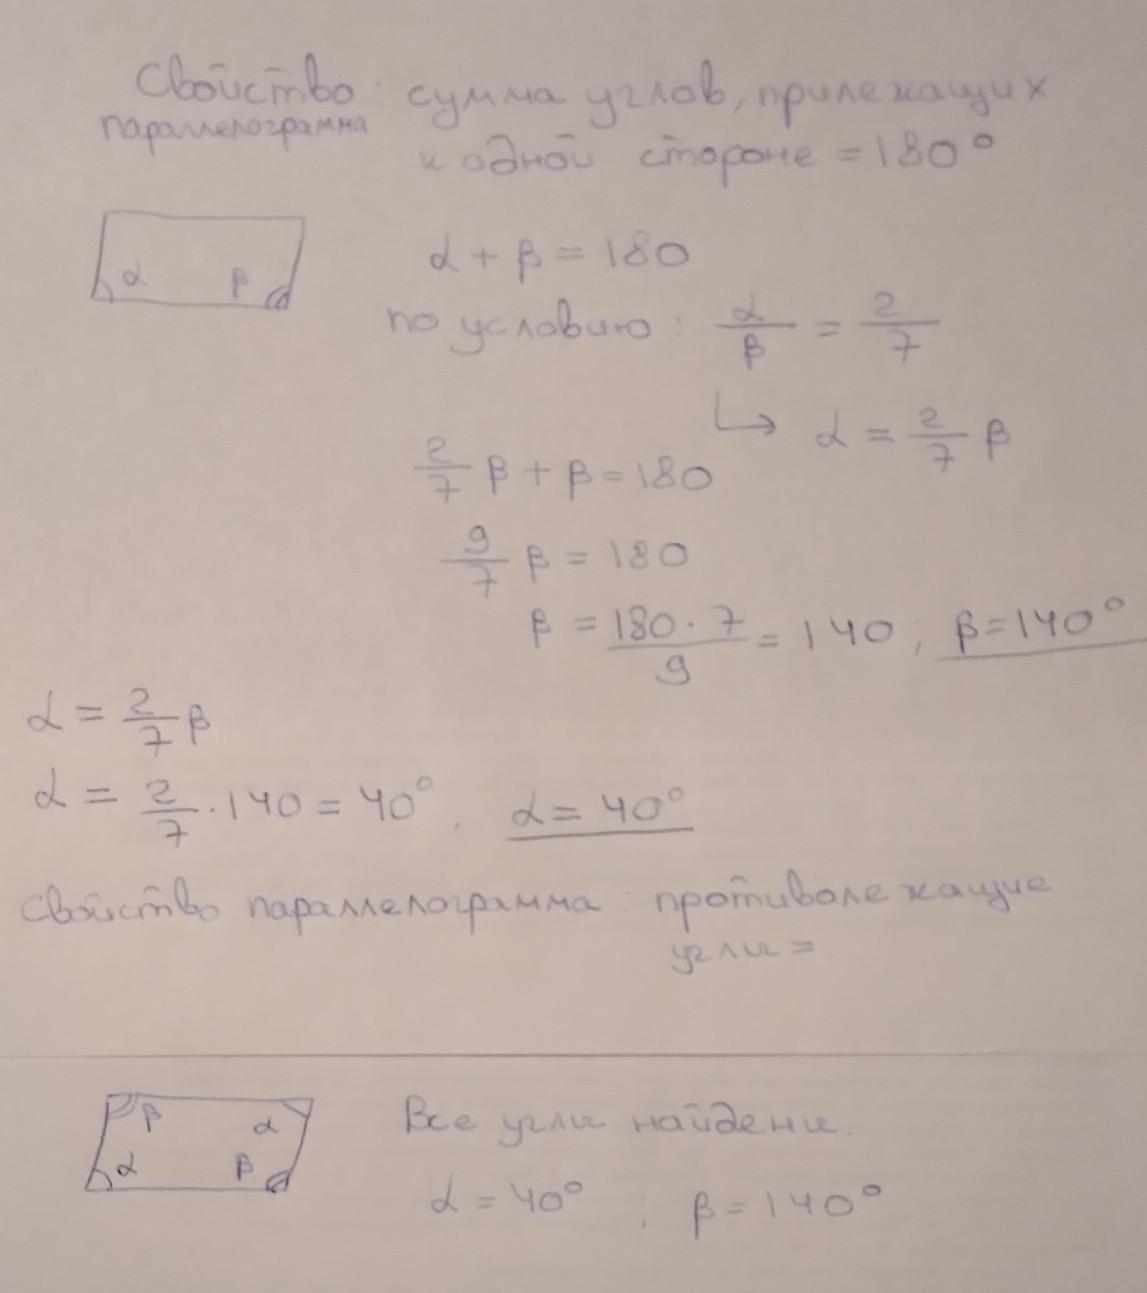 Свойство: сумма углов, прилежащих
параллелограмма к одной стороне = 180°
α β
α + β = 180
по условию: α/β = 2/7
↳ α = 2/7 β
2/7 β + β = 180
9/7 β = 180
β = 180·7/9 = 140; β = 140°
α = 2/7 β
α = 2/7 · 140 = 40°, α = 40°
Свойство параллелограмма: противолежащие
углы =
β α
α β
Все углы найдены.
α = 40° ; β = 140°